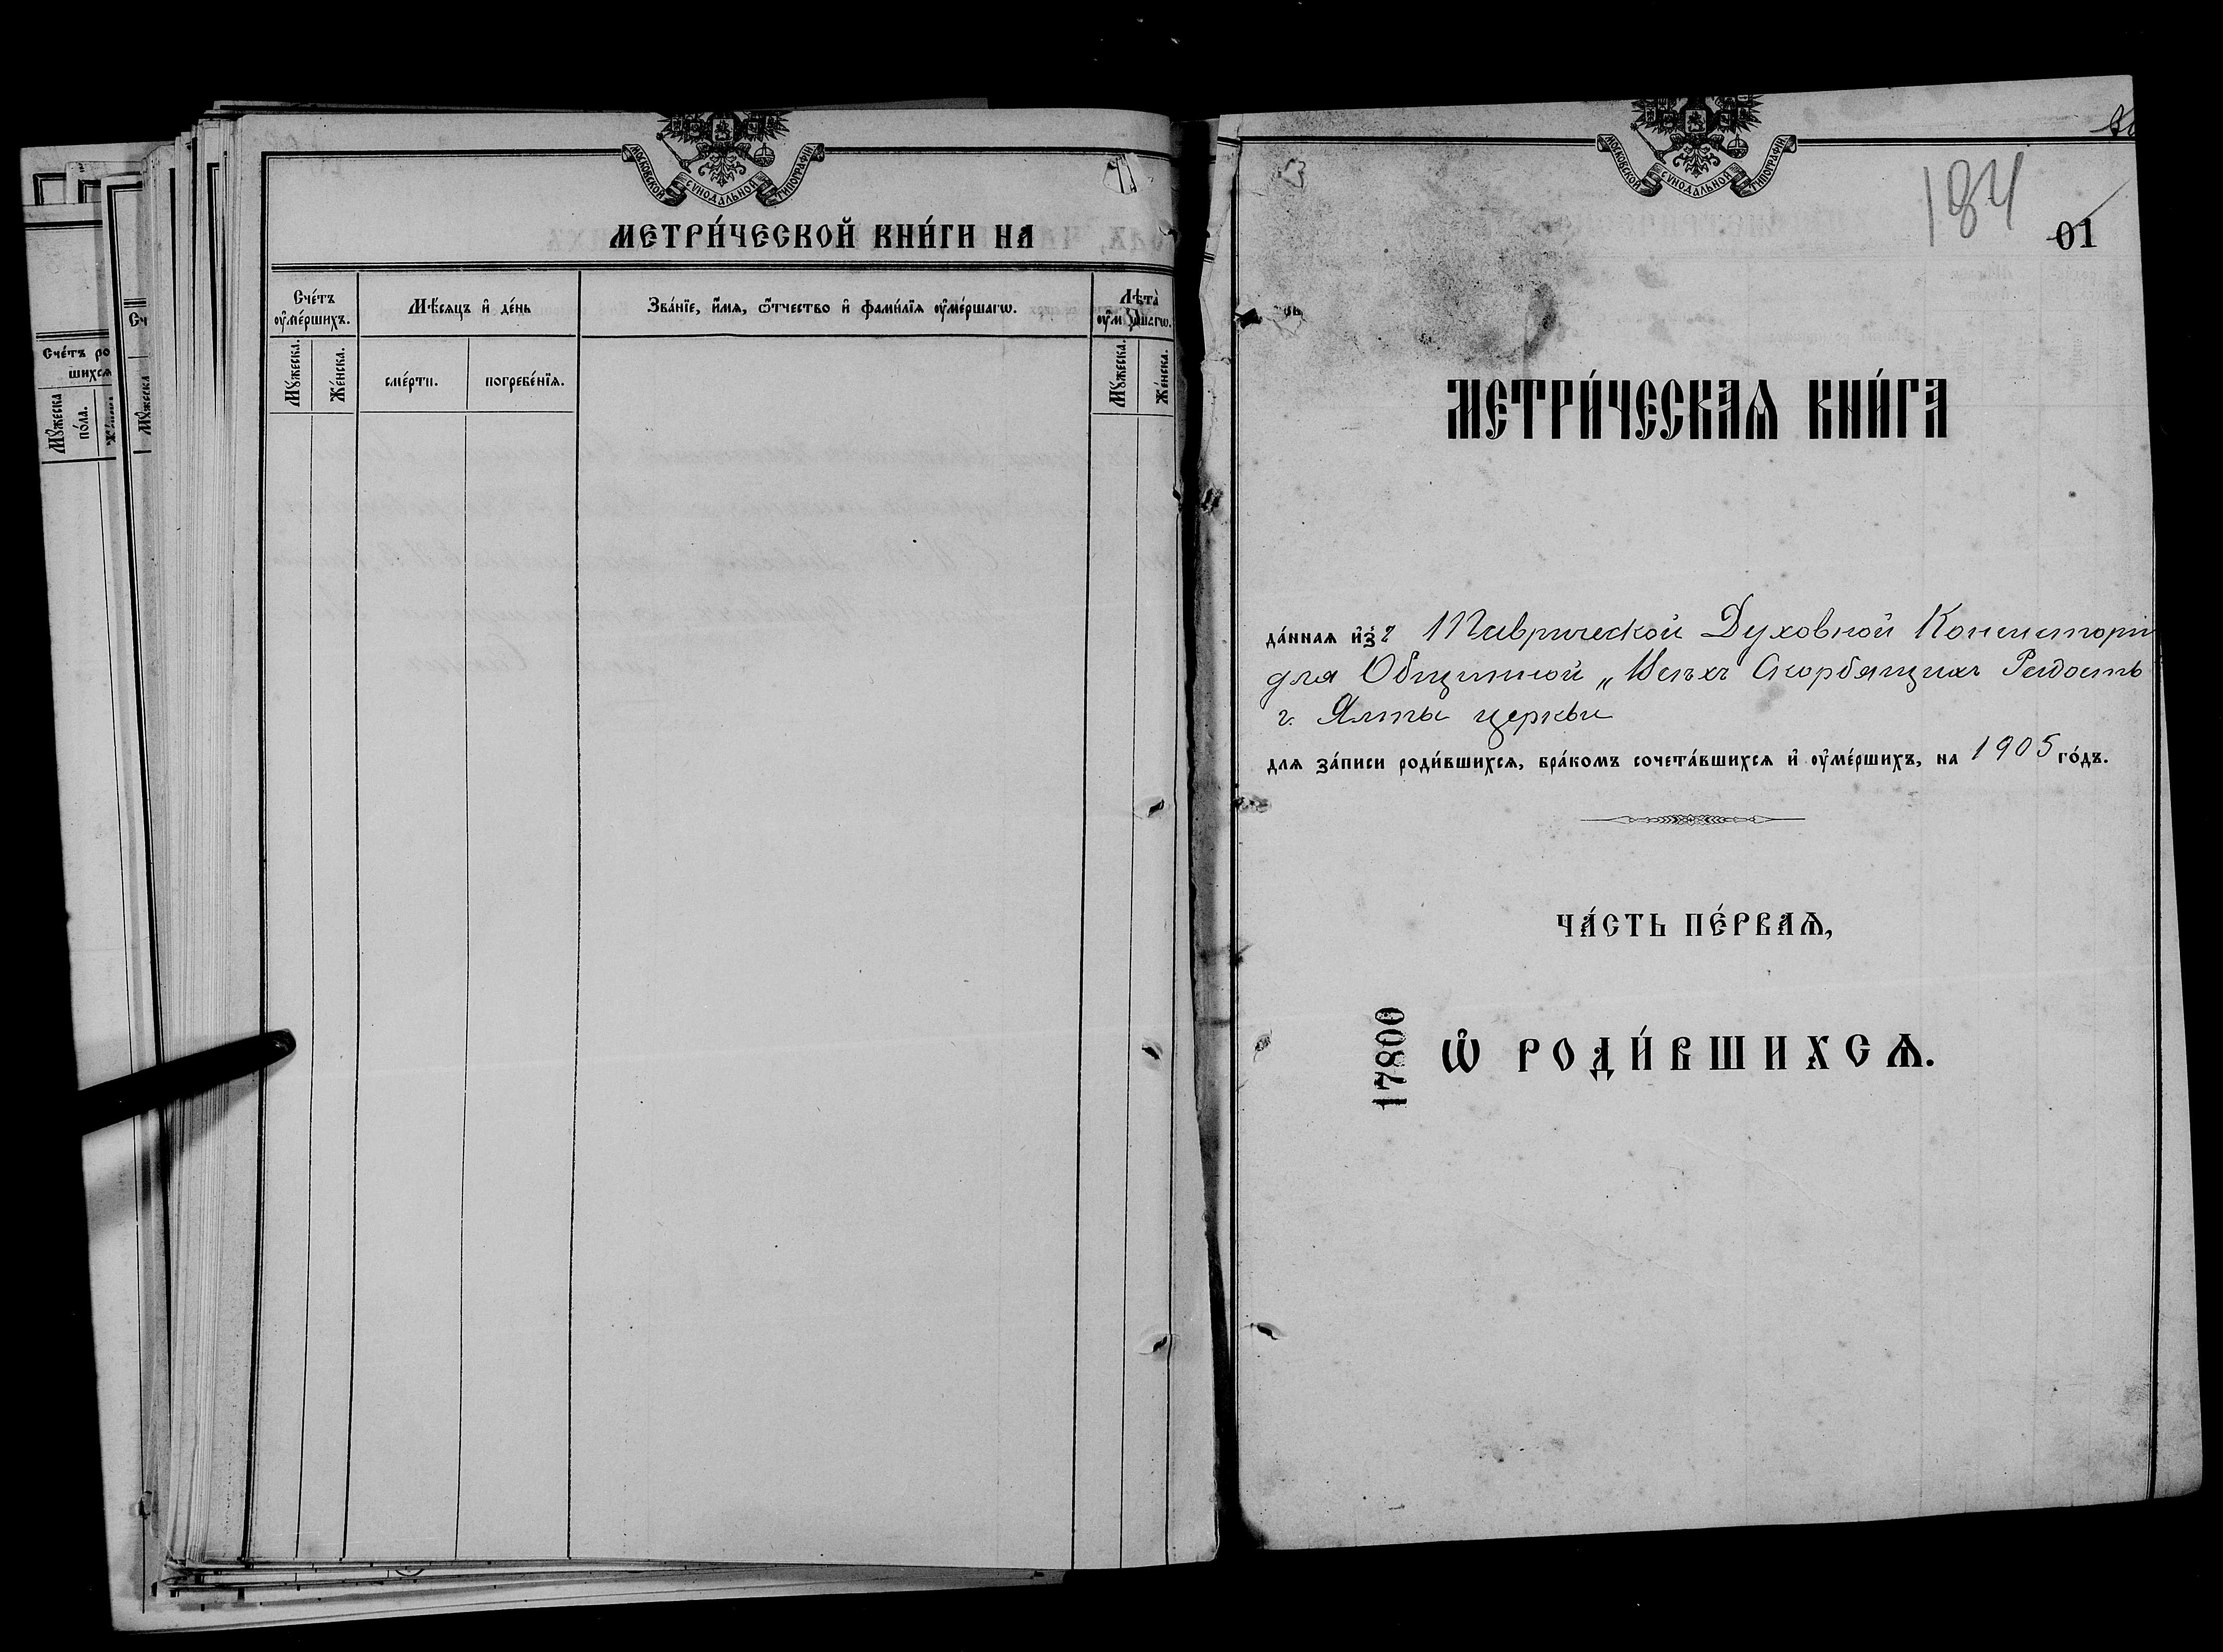 МОСКОВСКОЙ СѴНОДАЛЬНОЙ ТИПОГРАФІИ
МЕТРИ́ЧЕСКОЙ КНИ́ГИ НА
Сче́тъ ᲂу҆ме́ршихъ.
Мѣ́сяцъ и҆ де́нь
Зва́нїе, и҆́мя, ѻ҆́тчество и҆ фами́лїя ᲂу҆ме́ршагѡ.
Лѣта̀
Мꙋ́жеска.
Же́нска.
сме́рти.
погребе́нїя.
Мꙋ́жеска.
Же́нска.
Сче́тъ ро
шихся
Мꙋ́жеска
по́ла.
Сч
Мꙋ́жеска
МОСКОВСКОЙ СѴНОДАЛЬНОЙ ТИПОГРАФІИ
184
01
МЕТРИ́ЧЕСКАѦ КНИ́ГА
да́нная и҆зъ Таврической Духовной Консисторіи
для Общинной „Всѣхъ Скорбящихъ Радость
г. Ялты церкви
для за́писи роди́вшихся, бра́комъ сочета́вшихся и҆ ᲂу҆ме́ршихъ, на 1905 го́дъ.
ЧА́СТЬ ПЕ́РВАѦ,
17800
Ѡ҆ РОДИ́ВШИХСѦ.